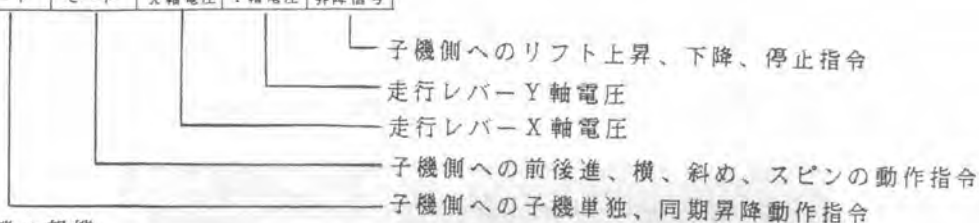 X軸電圧 Y軸電圧 昇降信号
子機側へのリフト上昇、下降、停止指令
走行レバーY軸電圧
走行レバーX軸電圧
子機側への前後進、横、斜め、スピンの動作指令
子機側への子機単独、同期昇降動作指令